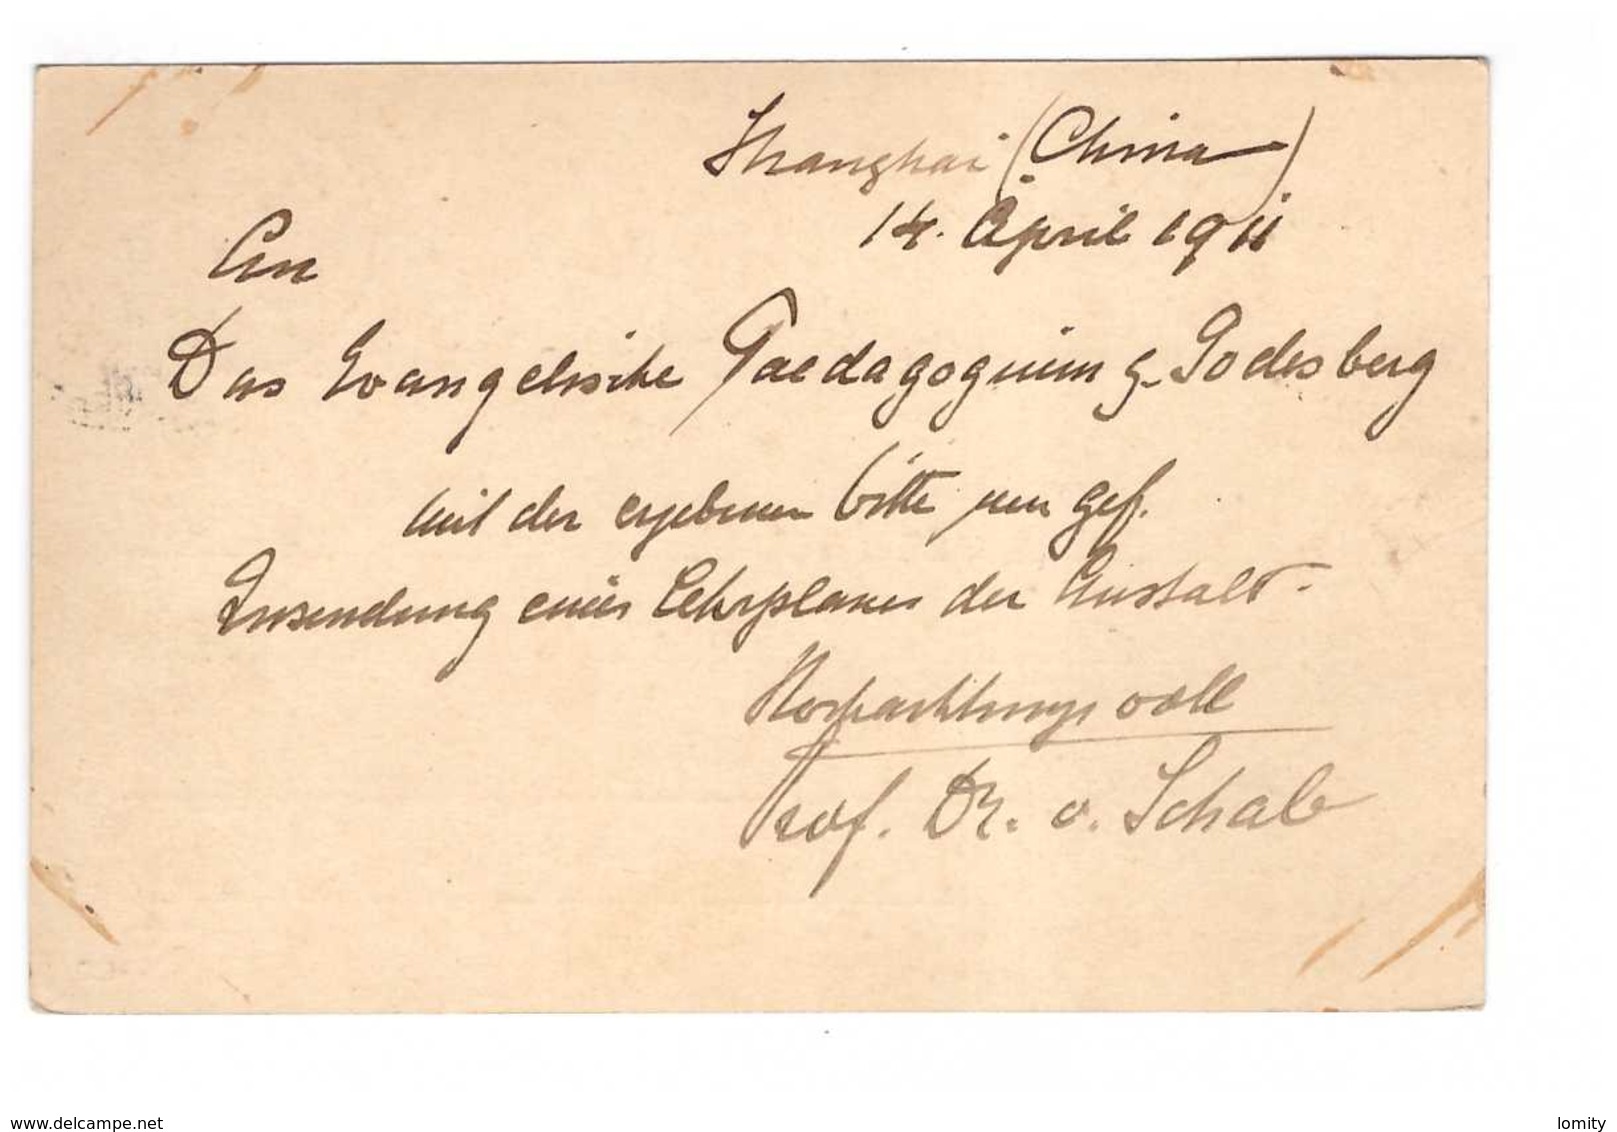 Shanghai (China)
14. April 1911
An
Das Evangelische Paedagogium z. Godesberg
mit der ergebenen bitte um gef.
Zusendung eines Lehrplanes der Anstalt.
Hochachtungsvoll
Prof. Dr. v. Schab
www.delcampe.net
lomity